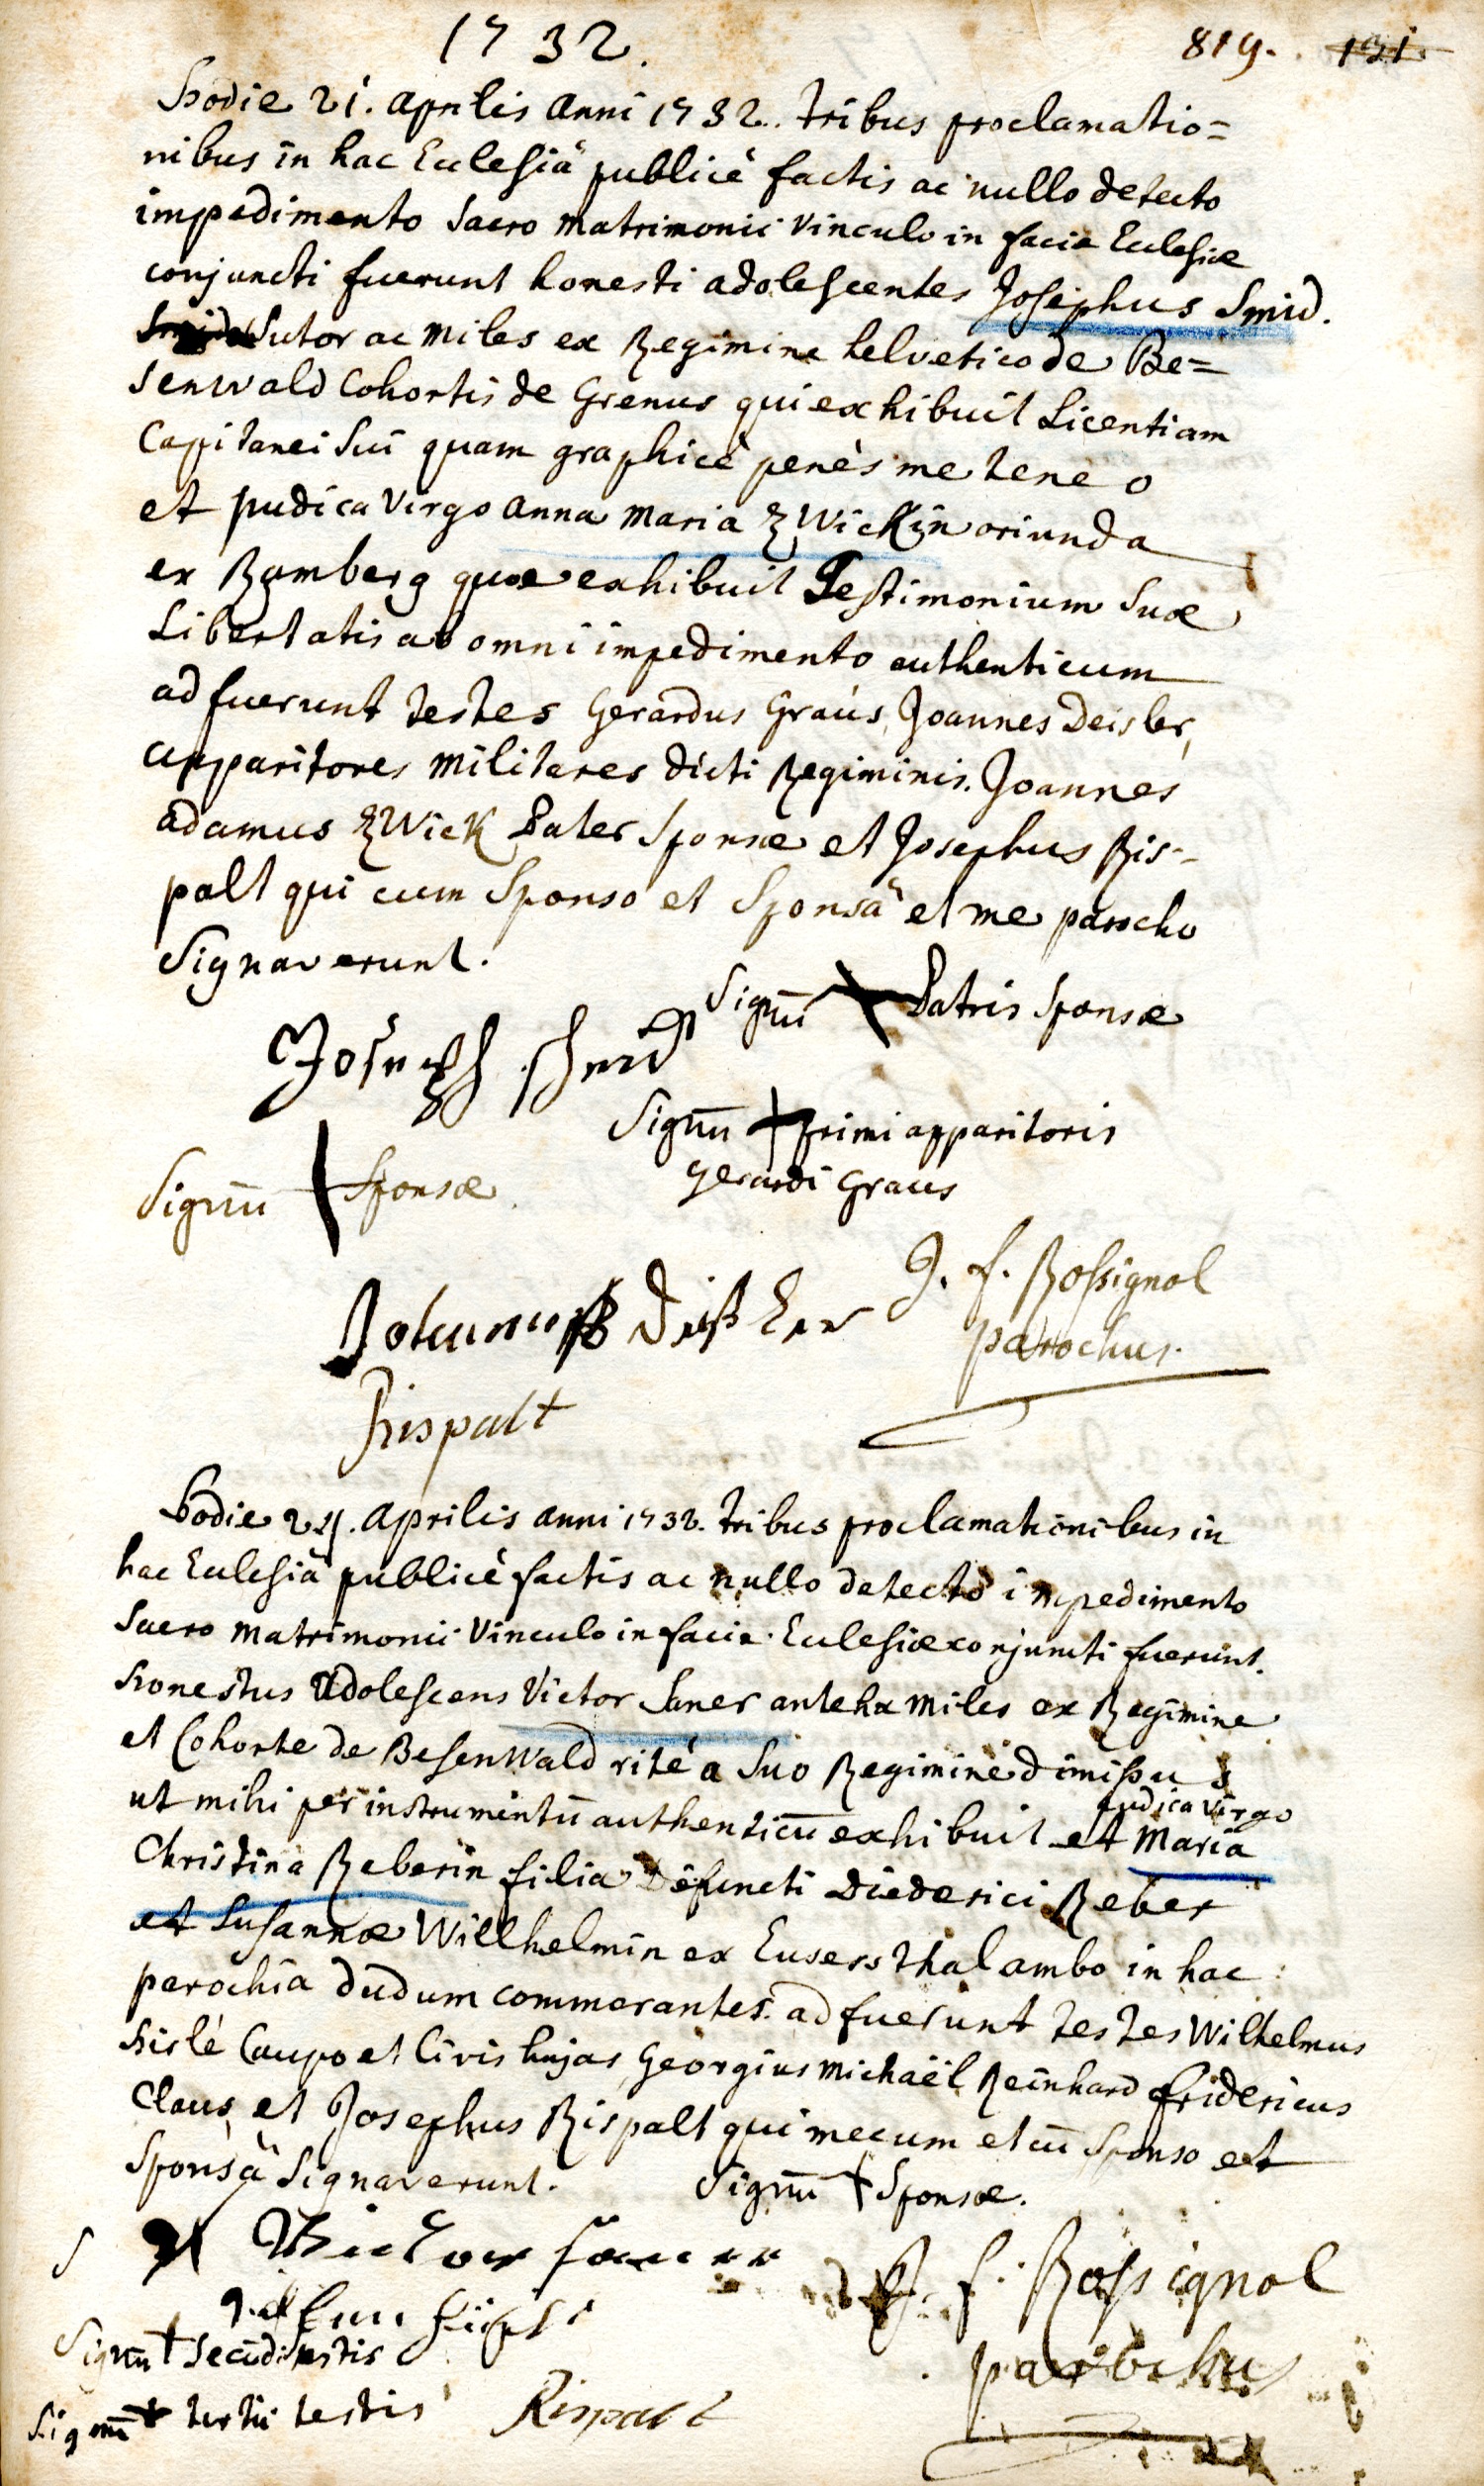 1732.
819. 131
Hodie 21. aprilis anni 1732. tribus proclamatio=
nibus in hac Ecclesiâ publicè factis ac nullo detecto
impedimento sacro matrimonii vinculo in facie Ecclesiæ
conjuncti fuerunt honesti adolescentes Josephus Smid.
Sutor ac miles ex Regimine helvetico de Be=
senwald Cohortis de Grenus qui exhibuit Licentiam
Capitanei sui quam graphicè penès me teneo
et pudica virgo anna maria Zwickin oriunda
ex Bamberg quæ exhibuit Testimonium suæ
Libertatis ab omni impedimento authenticum
adfuerunt testes Gerardus Graus, Joannes Deisler,
apparitores militares dicti Regiminis. Joannes
adamus Zwick Pater sponsæ et Josephus Ris-
palt qui cum Sponso et Sponsâ et me parocho
signaverunt.
Signū Patris sponsæ
Joseph schmid
Signū primi apparitoris
gerardi Graus
Signū Sponsæ
J. f. Rossignol
parochus.
Johannes
Rispalt
Hodie 24. aprilis anni 1732. tribus proclamationibus in
hac Ecclesiâ publicè factis ac nullo detecto impedimento
sacro matrimonii vinculo in facie Ecclesiæ conjuncti fuerunt.
honestus adolescens Victor Saner antehac miles ex Regimine
et Cohorte de Besenwald ritè a suo Regimine dimissus
pudica virgo
ut mihi per instrumentū authenticū exhibuit et Maria
Christina Reberin filia defuncti Diederici Reber
et Susannæ Willhelmin ex Eusersthal ambo in hac
parochia dudum commorantes. adfuerunt testes Wilhelmus
hislé Caupo et Civis hujas, Georgius Michaël Reinhard fridericus
Claus et Josephus Rispalt qui mecum et cū Sponso et
Sponsâ signaverunt.
Signū Sponsæ.
Victor
J. f. Rossignol
parochus
Signū secūdi testis
Signū tertii testis
Rispalt